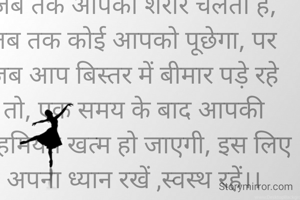 जब तक आपका शरीर चलता है,
जब तक कोई आपको पूछेगा, पर
जब आप बिस्तर में बीमार पड़े रहे
तो, एक समय के बाद आपकी
अहमियत खत्म हो जाएगी, इस लिए
अपना ध्यान रखें ,स्वस्थ रहें।।
Storymirror.com